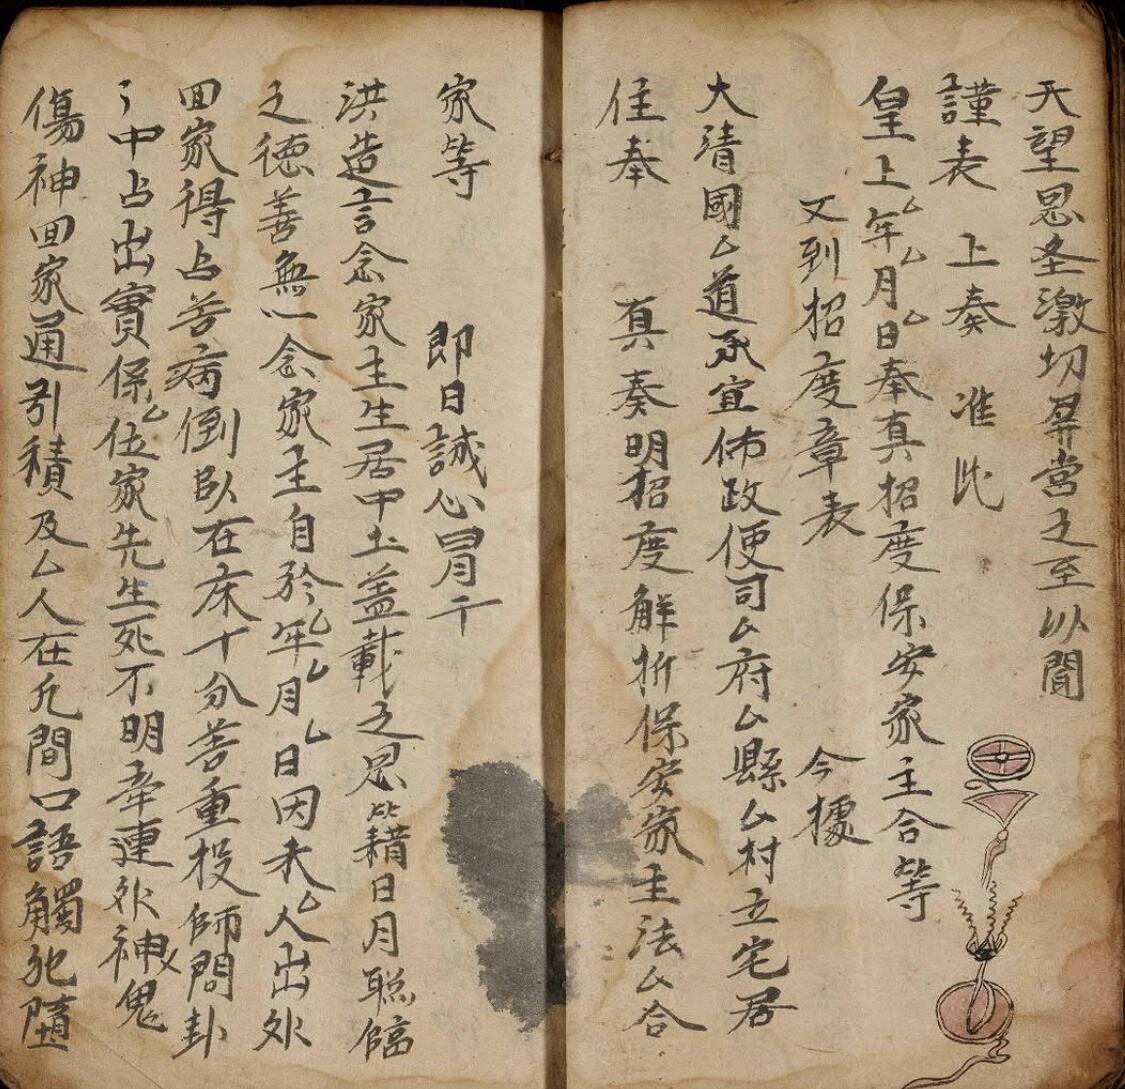 天望恩圣激切屏营之至以聞
謹表　上奏　准此
皇上厶年厶月厶日奉真招度保安家主合等
又到招度章表　今據
大清國厶道承宣佈政使司厶府厶縣厶村立宅居
住奉　真奏明招度解折保安家主法厶合
家等　即日誠心冒干
洪造言念家主生居中土盖載之恩叱藉日月聡臨
之德善無一念家主自於厶年厶月厶日因未厶人出外
回家得占苦病倒臥在床十分苦重投師問卦
中占出實係厶位家先生死不明牵連外神鬼
傷神回家通引積及厶人在凢間口語觸犯墮